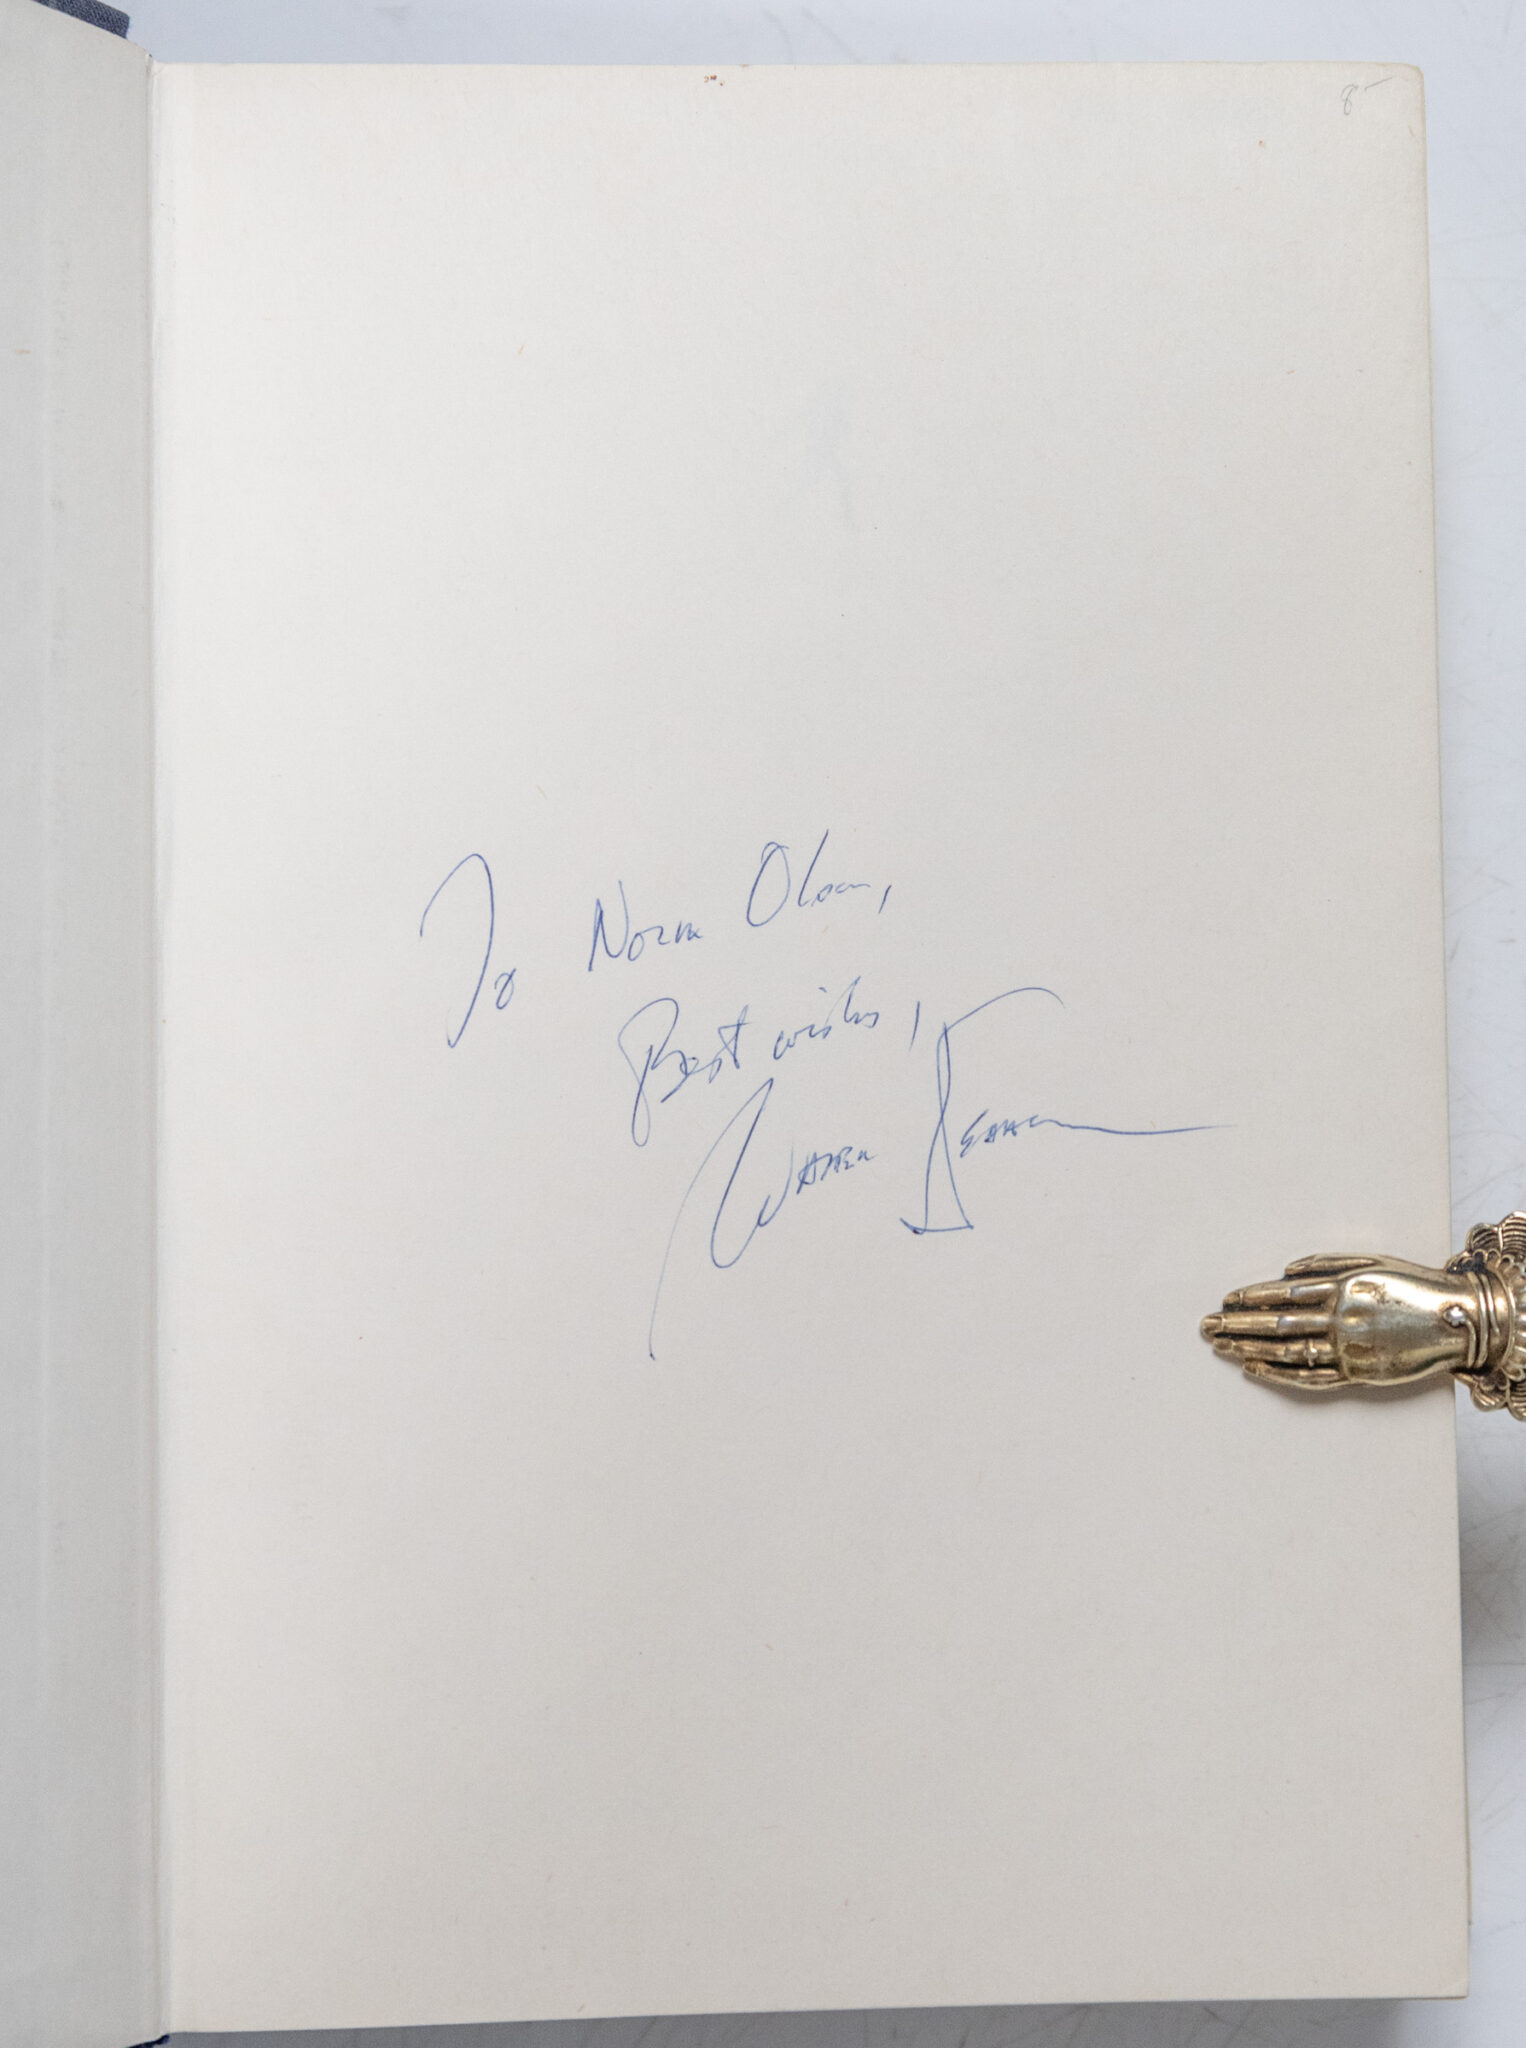 8-
To Norm Olson,
Best wishes,
Warren Isaac